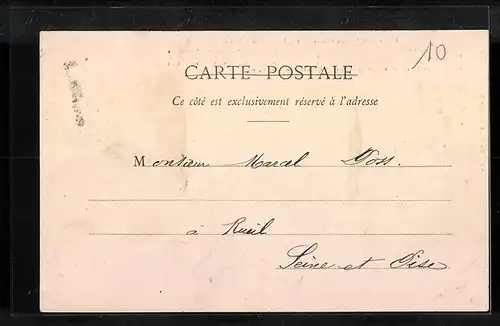 10
CARTE POSTALE
Ce côté est exclusivement réservé à l'adresse
Monsieur Marcel Doss.
à Rueil
Seine et Oise